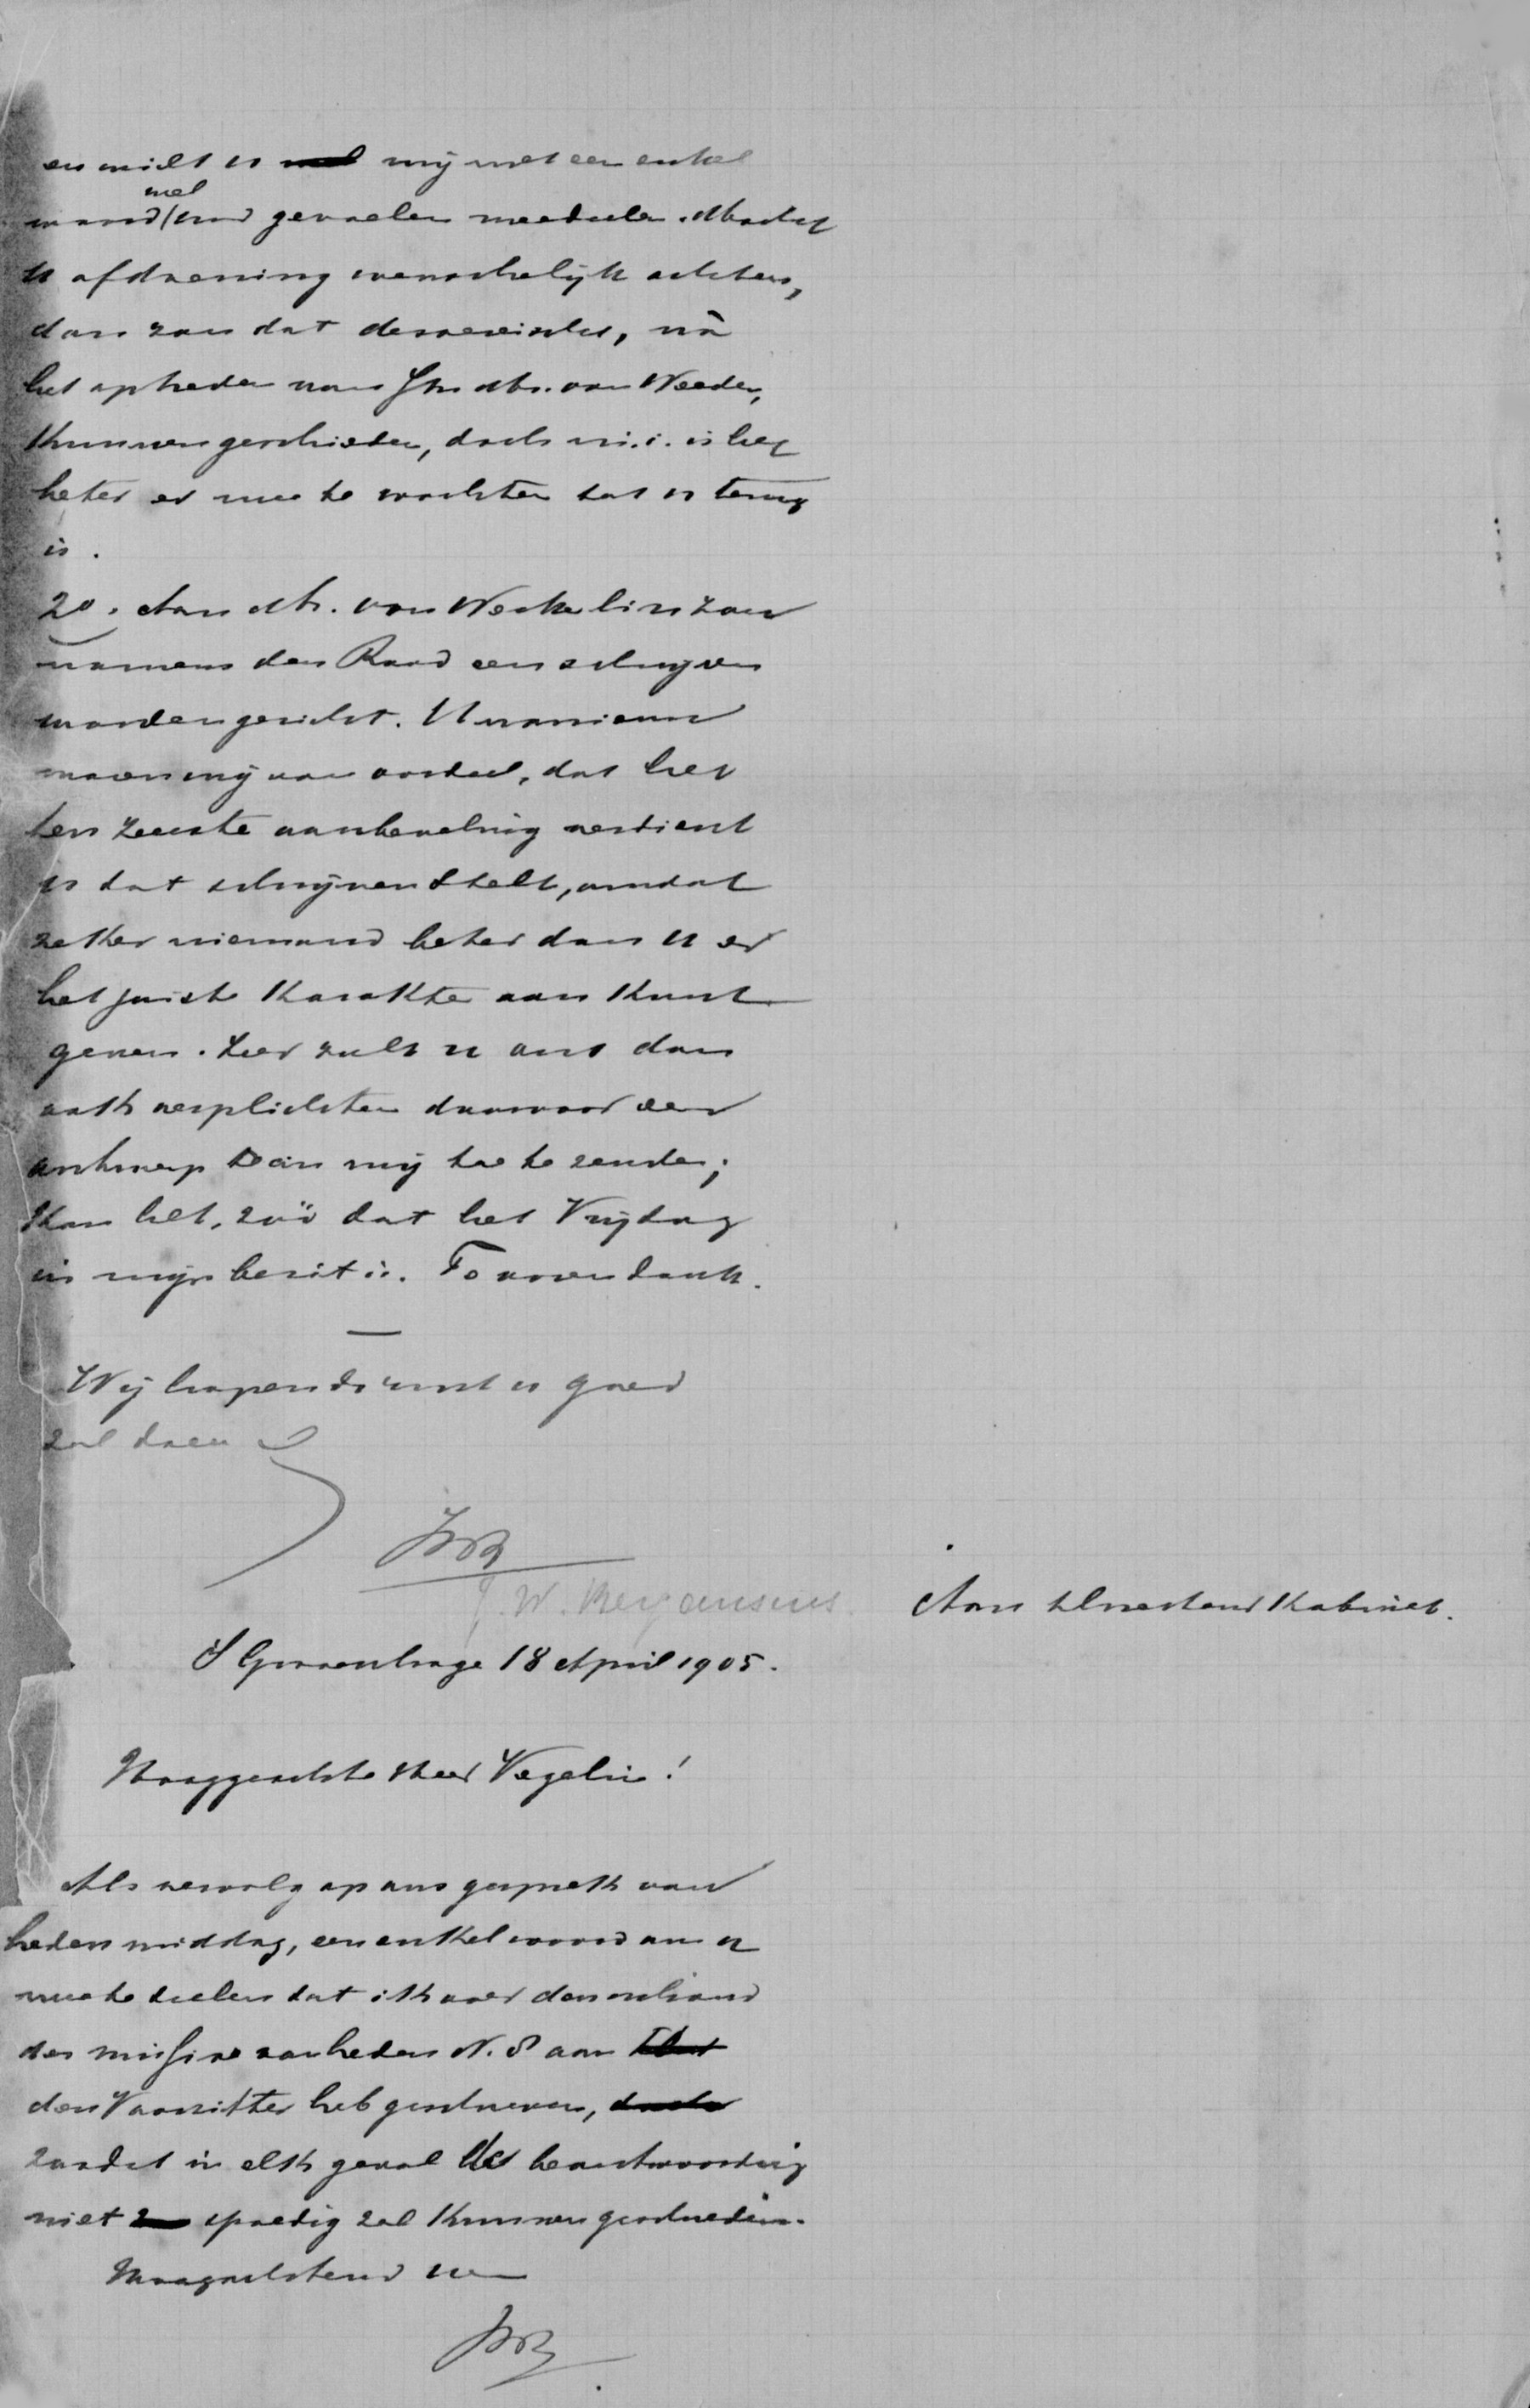 en wilt u mij met een enkel
woord wel uw gevoelen meedeelen. Mocht
u afdoening wenschelijk achten,
dan zou dat desgewenscht, nà
het optreden van Jhr Mr. van Weede,
kunnen geschieden, doch m.i. is het
beter er mee te wachten tot u terug
is.
2o. Aan Mr. van Weckelin zou
namens den Raad een schrijven
worden gericht. Unaniem
waren wij van oordeel, dat het
ten zeerste aanbeveling verdient
u dat schrijven stelt, omdat
zeker niemand beter dan u er
het juiste karakter aan kunt
geven. Zeer zult u ons dan
ook verplichten daarvoor een
ontwerp aan mij toe te zenden;
kan het, zóó dat het Vrijdag
in mijn bezit is. Te voren dank.
Wij hopen de rust u goed
zal doen
JWB
J. W. Bergansius.
Aan Kabinet.
's Gravenhage 18 April 1905.
Hooggeachte Heer Vegelin!
Als vervolg op ons gesprek van
heden middag, een enkel woord om u
mee te deelen dat ik over den inhoud
der missive van heden N. 8 aan
den Voorzitter heb geschreven,
zoodat in elk geval de beantwoording
niet spoedig zal kunnen geschieden.
Hoogachtend uw
JWB